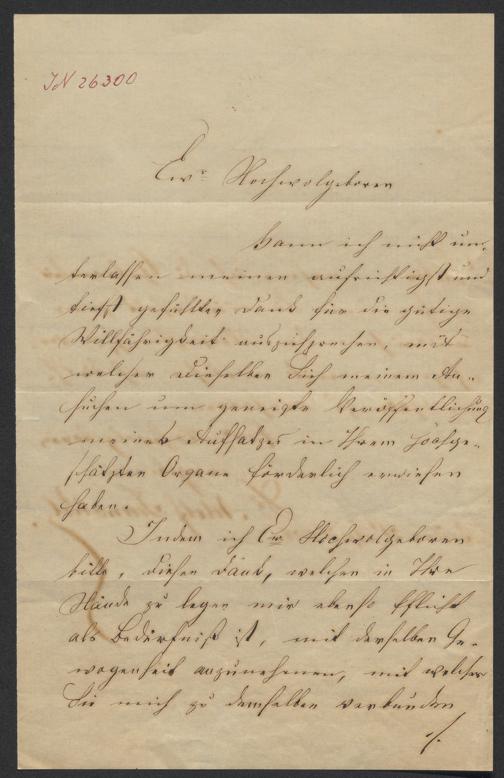 IN 26300
Ewr Hochwolgeboren
kann ich nicht un-
terlassen meinen aufrichtigst und
tiefst gefühlten Dank für die gütige
Willfährigkeit auszusprechen, mit
welcher Dieselben Sich meinem An-
suchen um geneigte Veröffentlichung
meines Aufsatzes in Ihrem hochge-
schätzten Organe förderlich erwiesen
haben.
Indem ich Ew Hochwolgeboren
bitte, diesen Dank, welchen in Ihre
Hände zu legen mir ebenso Pflicht
als Bedürfniß ist, mit derselben Ge-
wogenheit anzunehmen, mit welcher
Sie mich zu demselben verbunden